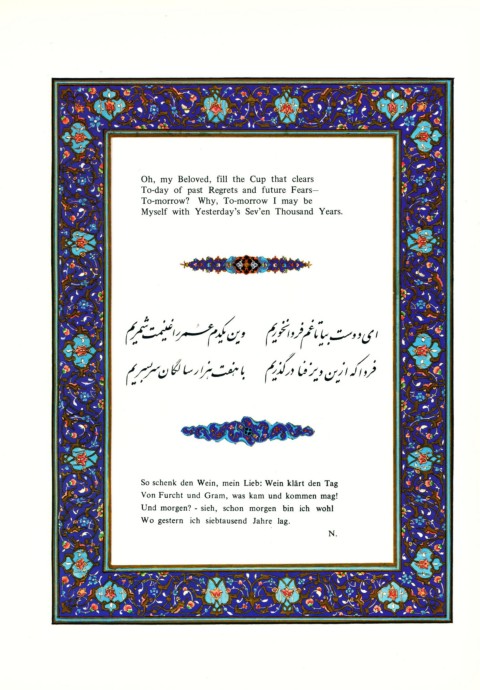 Oh, my Beloved, fill the Cup that clears
To-day of past Regrets and future Fears—
To-morrow? Why, To-morrow I may be
Myself with Yesterday's Sev'en Thousand Years.
ای دوست بیا تا غم فردا نخوریم وین یکدم عمر را غنیمت شمریم
فردا که ازین دیر فنا درگذریم با هفت هزار سالگان سر بسریم
So schenk den Wein, mein Lieb: Wein klärt den Tag
Von Furcht und Gram, was kam und kommen mag!
Und morgen? - sieh, schon morgen bin ich wohl
Wo gestern ich siebtausend Jahre lag.
N.